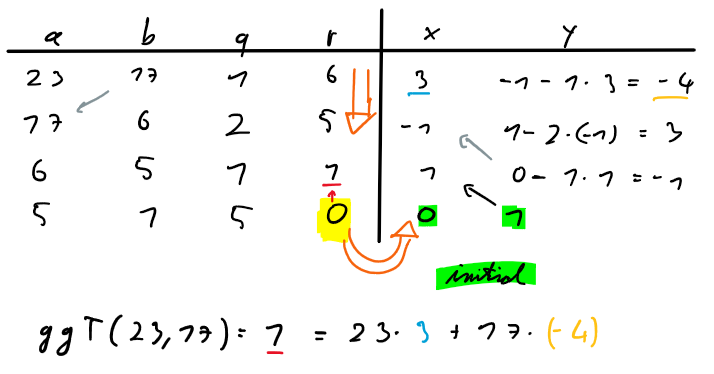 a b q r x y
23 17 1 6 3 -1 - 1 · 3 = -4
17 6 2 5 -1 1 - 2 · (-1) = 3
6 5 1 1 1 0 - 1 · 1 = -1
5 1 5 0 0 1
initial
ggT(23,17) = 1 = 23 · 3 + 17 · (-4)